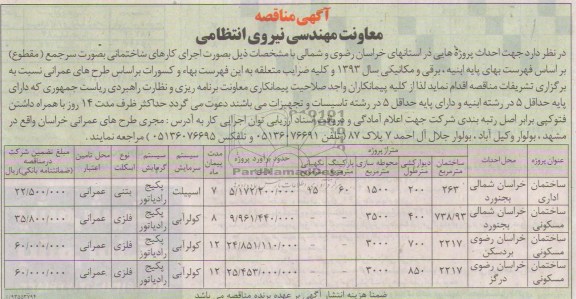 آگهی مناقصه
معاونت مهندسی نیروی انتظامی
در نظر دارد جهت احداث پروژه هایی در استانهای خراسان رضوی و شمالی با مشخصات ذیل بصورت اجرای کارهای ساختمانی بصورت سرجمع (مقطوع)
بر اساس فهرست بهای پایه ابنیه ، برقی و مکانیکی سال ۱۳۹۳ و کلیه ضرایب متعلقه به این فهرست بهاء و کسورات براساس طرح های عمرانی نسبت به
برگزاری تشریفات مناقصه اقدام نماید لذا از کلیه پیمانکاران واجد صلاحیت پیمانکاری معاونت برنامه ریزی و نظارت راهبردی ریاست جمهوری که دارای
پایه حداقل ۵ در رشته ابنیه و دارای پایه حداقل ۵ در رشته تاسیسات و تجهیزات می باشند دعوت می گردد حداکثر ظرف مدت ۱۴ روز با همراه داشتن
فتوکپی برابر اصل رتبه بندی شرکت جهت اعلام آمادگی و اسناد ارزیابی توان اجرایی کار به آدرس : مجری طرح های عمرانی خراسان واقع در
مشهد ، بولوار وکیل آباد ، بولوار جلال آل احمد ۷ پلاک ۸۷ (تلفن ۰۵۱۳۶۰۷۶۶۹۱ و تلفکس ۰۵۱۳۶۰۷۶۶۹۵) مراجعه نمایند.
متراژ پروژه
عنوان پروژه محل احداث ساختمان مترمربع دیوارکشی مترطولی محوطه سازی مترمربع پارکینگ مترمربع نگهبانی حدود برآورد پروژه مدت پیمان ماه سیستم سرمایش سیستم گرمایش نوع اسکلت محل تامین اعتبار مبلغ تضمین شرکت درمناقصه (ضمانتنامه بانکی) ریال
ساختمان اداری خراسان شمالی بجنورد ۲۶۳ ۲۰۰ ۱۵۰۰ ۶۰ ۱۵ ۵/۱۷۲/۲۰۰/۰۰۰ ۷ اسپیلت پکیج رادیاتور بتنی عمرانی ۲۲/۵۰۰/۰۰۰
ساختمان مسکونی خراسان شمالی بجنورد ۷۳۸/۹۳ ۴۰۰ ۳۵۰۰ - - ۹/۹۶۱/۴۴۰/۰۰۰ ۸ کولرآبی پکیج رادیاتور فلزی عمرانی ۳۵/۸۰۰/۰۰۰
ساختمان مسکونی خراسان رضوی بردسکن ۲۲۱۷ ۷۰۰ ۳۰۰۰ - - ۲۴/۸۵۱/۱۱۰/۰۰۰ ۱۲ کولرآبی پکیج رادیاتور فلزی عمرانی ۶۰/۰۰۰/۰۰۰
ساختمان مسکونی خراسان رضوی درگز ۲۲۱۷ ۸۵۰ ۳۰۰۰ - - ۲۵/۴۵۳/۰۰۰/۰۰۰ ۱۲ کولرآبی پکیج رادیاتور فلزی عمرانی ۶۰/۰۰۰/۰۰۰
ضمنا هزینه انتشار آگهی بر عهده برنده مناقصه می باشد